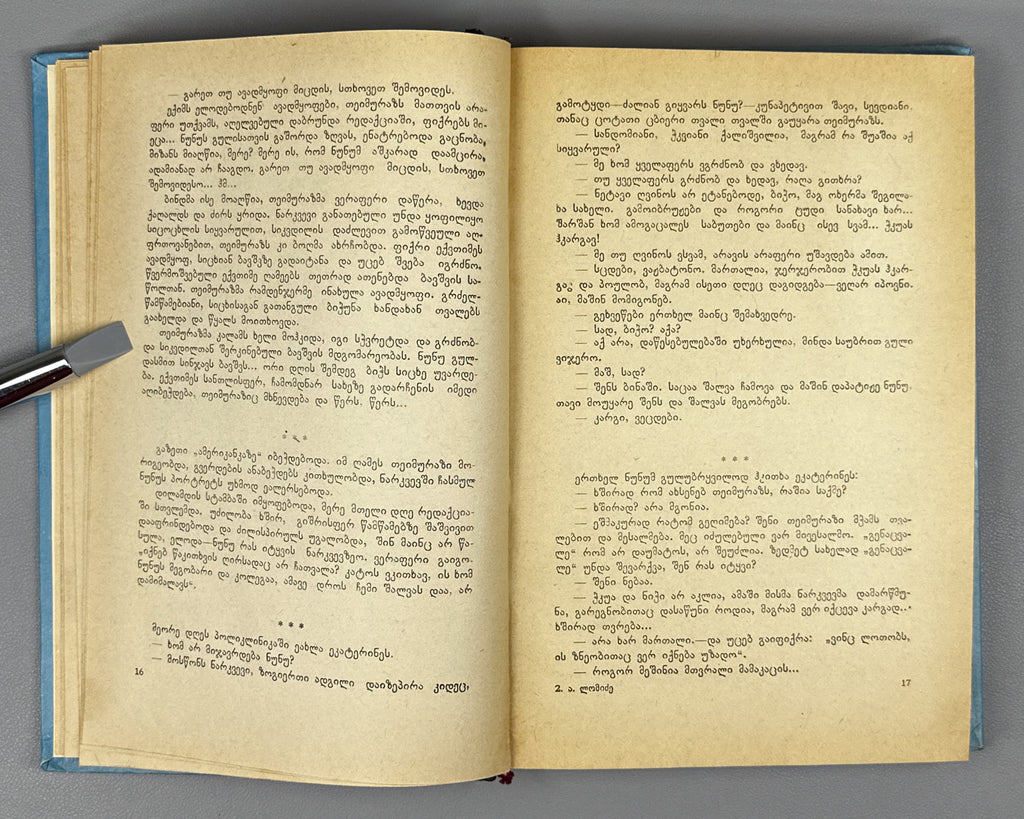 — გარეთ თუ ავადმყოფი მიცდის, სთხოვეთ შემოვიდეს.
ექიმს ელოდებოდნენ ავადმყოფები, თეიმურაზს მათთვის არა-
ფერი უთქვამს, აღელვებული დაბრუნდა რედაქციაში, ფიქრებს მი-
ეცა... ნუნუს გულისათვის გაშორდა ზღვას, ენატრებოდა გაცნობა,
მიზანს მიაღწია, მერე? მერე ის, რომ ნუნუმ აშკარად დაამცირა,
ადამიანად არ ჩააგდო. გარეთ თუ ავადმყოფი მიცდის, სთხოვეთ
შემოვიდესო... ჰმ...
ბინდმა ისე მოაღწია, თეიმურაზმა ვერაფერი დაწერა, ხევდა
ქაღალდს და ძირს ყრიდა. ნარკვევი განათებული უნდა ყოფილიყო
სიცოცხლის სიყვარულით, სიკვდილის დაძლევით გამოწვეული აღ-
ფრთოვანებით, თეიმურაზს კი ბოღმა ახრჩობდა. ფიქრი ექვთიმეს
ავადმყოფ, სიცხიან ბავშვზე გადაიტანა და უცებ შვება იგრძნო.
წვერმოშვებული ექვთიმე ღამეებს თეთრად ათენებდა ბავშვის სა-
წოლთან. თეიმურაზმა რამდენჯერმე ინახულა ავადმყოფი. გრძელ-
წამწამებიანი, სიცხისაგან გათანგული ბიჭუნა ხანდახან თვალებს
გაახელდა და წყალს მოითხოვდა.
თეიმურაზმა კალამს ხელი მოჰკიდა, იგი სჭვრეტდა და გრძნობ-
და სიკვდილთან შერკინებული ბავშვის მდგომარეობას. ნუნუ გულ-
დასმით სინჯავს ბავშვს... ორი დღის შემდეგ ბიჭს სიცხე უვარდე-
ბა. ექვთიმეს სანთლისფერ, ჩამომდნარ სახეზე გადარჩენის იმედი
აღიბეჭდება, თეიმურაზიც მხნევდება და წერს. წერს...
* * *
გაზეთი „ამერიკანკაზე“ იბეჭდებოდა. იმ ღამეს თეიმურაზი მო-
რიგეობდა, გვერდების ანაბეჭდებს კითხულობდა, ნარკვევში ჩასმულ
ნუნუს პორტრეტს უხმოდ ეალერსებოდა.
დილამდის სტამბაში იმყოფებოდა, მერე მთელი დღე რედაქცია-
ში სთვლემდა. უძილობა ხშირ, გიშრისფერ წამწამებზე შაშვივით
დააფრინდებოდა და ძილისპირულს უგალობდა, შინ მაინც არ წა-
სულა, ელოდა—ნუნუ რას იტყვის ნარკვევზეო. ვერაფერი გაიგო.
„იქნებ წაკითხვის ღირსადაც არ ჩათვალა? კატოს ვკითხავ, ის ხომ
ნუნუს მეგობარი და კოლეგაა, ამავე დროს ჩემი შალვას დაა, არ
დამიმალავს“.
* * *
მეორე დღეს პოლიკლინიკაში ეახლა ეკატერინეს.
— ხომ არ მიჯავრდება ნუნუ?
— მოსწონს ნარკვევი, ზოგიერთი ადგილი დაიზეპირა კიდეც,
16
გამოტყდი—ძალიან გიყვარს ნუნუ?—კუნაპეტივით შავი, სევდიანი
თანაც ცოტათი ცბიერი თვალი თვალში გაუყარა თეიმურაზს.
— სანდომიანი, ჭკვიანი ქალიშვილია, მაგრამ რა შუაშია აქ
სიყვარული?
— მე ხომ ყველაფერს ვგრძნობ და ვხედავ.
— თუ ყველაფერს გრძნობ და ხედავ, რაღა გითხრა?
— ნეტავი ღვინოს არ ეტანებოდე, ბიჭო, მაგ ოხერმა შეგილა-
ხა სახელი. გამოიბრუჟები და როგორი ტუდი სანახავი ხარ...
შარშან ხომ ამოგაცალეს საბუთები და მაინც ისევ სვამ... ჭკუას
ჰკარგავ!
— მე თუ ღვინოს ვსვამ, არავის არაფერი უშავდება ამით.
— სცდები, ვაჟბატონო. მართალია, ჯერჯერობით ჭკუას ჰკარ-
გავ და პოულობ, მაგრამ ისეთი დღეც დაგიდგება—ველარ იპოვნი.
აი, მაშინ მომიგონებ.
— გეხვეწები ერთხელ მაინც შემახვედრე.
— სად, ბიჭო? აქა?
— აქ არა, დაწესებულებაში უხერხულია, მინდა საუბრით გული
ვიჯერო.
— მაშ, სად?
— შენს ბინაში. საცაა შალვა ჩამოვა და მაშინ დაპატიჟე ნუნუ.
თავი მოუყარე შენს და შალვას მეგობრებს.
— კარგი, ვეცდები.
* * *
ერთხელ ნუნუმ გულუბრყვილოდ ჰკითხა ეკატერინეს:
— ხშირად რომ ახსენებ თეიმურაზს, რაშია საქმე?
— ხშირად? არა მგონია.
— ეშმაკურად რატომ გეღიმება? შენი თეიმურაზი მპამს თვა-
ლებით და მესალმება. მეც იძულებული ვარ მივესალმო. „გენაცვა-
ლე“ რომ არ დაუმატოს, არ შეუძლია. ზედმეტ სახელად „გენაცვა-
ლე“ უნდა შევარქვა, შენ რას იტყვი?
— შენი ნებაა.
— ჭკუა და ნიჭი არ აკლია, ამაში მისმა ნარკვევმა დამარწმუ-
ნა, გარეგნობითაც დასაწუნი როდია, მაგრამ ვერ იქცევა კარგად...
ხშირად თვრება...
— არა ხარ მართალი.—და უცებ გაიფიქრა: „ვინც ლოთობს,
ის ზნეობითაც ვერ იქნება უზადო“.
— როგორ მეშინია მთვრალი მამაკაცის...
2. ა. ლომიძე
17